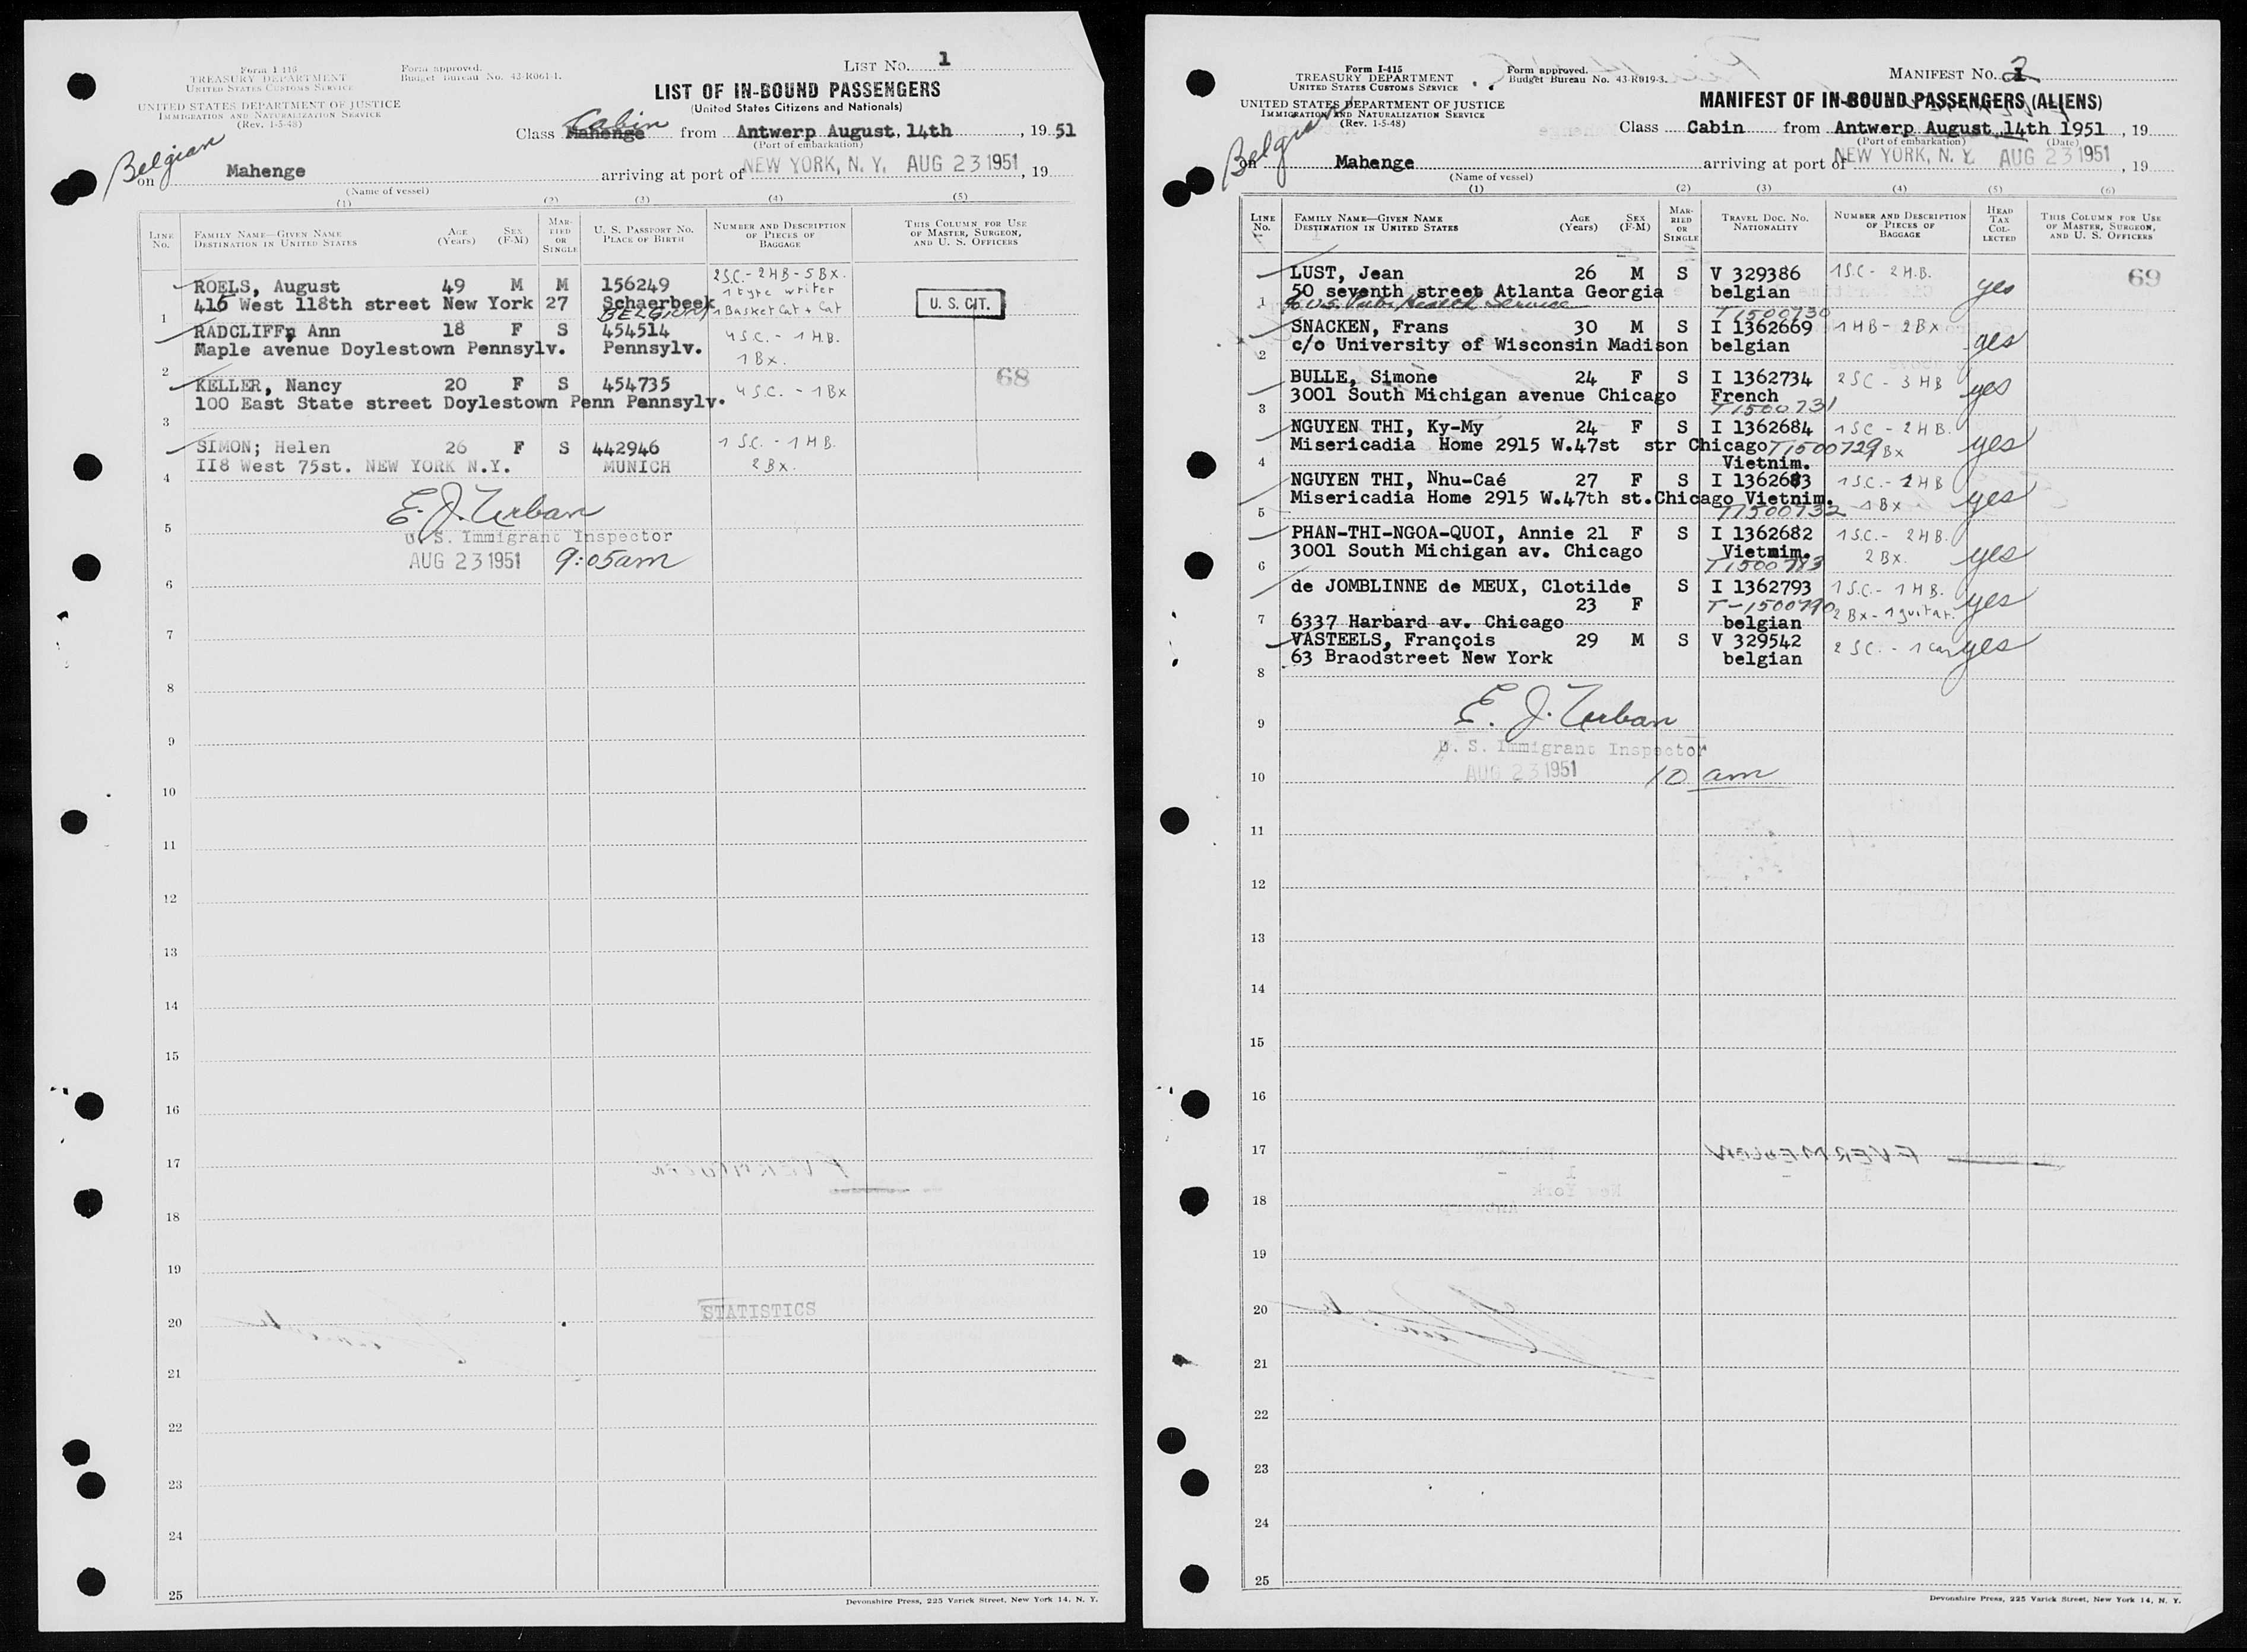 Form I 416
TREASURY DEPARTMENT
UNITED STATES CUSTOMS SERVICE
Form approved.
Budget Bureau No. 43-R061-1.
LIST NO. 1
UNITED STATES DEPARTMENT OF JUSTICE
IMMIGRATION AND NATURALIZATION SERVICE
(Rev. 1-5-48)
LIST OF IN-BOUND PASSENGERS
(United States Citizens and Nationals)
Cabin
Class Mahenge from Antwerp August, 14th, 19 51
(Port of embarkation)
Belgian
on Mahenge arriving at port of NEW YORK, N. Y. AUG 23 1951, 19
(Name of vessel)
(1) (2) (3) (4) (5)
LINE No.
FAMILY NAME—GIVEN NAME
DESTINATION IN UNITED STATES
AGE (Years)
SEX (F-M)
MARRIED OR SINGLE
U. S. PASSPORT NO.
PLACE OF BIRTH
NUMBER AND DESCRIPTION OF PIECES OF BAGGAGE
THIS COLUMN FOR USE OF MASTER, SURGEON, AND U. S. OFFICERS
ROELS, August 49 M M 156249 2 S.C. - 2 HB - 5 Bx.
1 type writer
1 416 West 118th street New York 27 Schaerbeek
BELGIUM 1 Basket Cat + Cat
U. S. CIT.
RADCLIFF, Ann 18 F S 454514 4 S.C. - 1 H.B.
2 Maple avenue Doylestown Pennsylv. Pennsylv. 1 Bx.
68
KELLER, Nancy 20 F S 454735 4 S.C. - 1 Bx
3 100 East State street Doylestown Penn Pennsylv.
SIMON; Helen 26 F S 442946 1 S.C. - 1 H B.
4 II8 West 75st. NEW YORK N.Y. MUNICH 2 Bx.
E. J. Urban
5
U. S. Immigrant Inspector
AUG 23 1951 9:05am
6
7
8
9
10
11
12
13
14
15
16
17
18
19
STATISTICS
20
21
22
23
24
25
Devonshire Press, 225 Varick Street, New York 14, N. Y.
Form I-415
TREASURY DEPARTMENT
UNITED STATES CUSTOMS SERVICE
Form approved.
Budget Bureau No. 43-R019-3.
MANIFEST NO. 2
UNITED STATES DEPARTMENT OF JUSTICE
IMMIGRATION AND NATURALIZATION SERVICE
(Rev. 1-5-48)
MANIFEST OF IN-BOUND PASSENGERS (ALIENS)
Class Cabin from Antwerp August, 14th 1951, 19
(Port of embarkation) (Date)
Belgian
on Mahenge arriving at port of NEW YORK, N. Y. AUG 23 1951, 19
(Name of vessel)
(1) (2) (3) (4) (5) (6)
LINE No.
FAMILY NAME—GIVEN NAME
DESTINATION IN UNITED STATES
AGE (Years)
SEX (F-M)
MARRIED OR SINGLE
TRAVEL DOC. NO.
NATIONALITY
NUMBER AND DESCRIPTION OF PIECES OF BAGGAGE
HEAD TAX COLLECTED
THIS COLUMN FOR USE OF MASTER, SURGEON, AND U. S. OFFICERS
LUST, Jean 26 M S V 329386 1 S.C. - 2 H.B. yes
69
50 seventh street Atlanta Georgia belgian
1 % U.S. Public Health Service
T1500730
SNACKEN, Frans 30 M S I 1362669 1 HB - 2 Bx yes
2 c/o University of Wisconsin Madison belgian
BULLE, Simone 24 F S I 1362734 2 SC - 3 HB yes
3 3001 South Michigan avenue Chicago French
T1500731
NGUYEN THI, Ky-My 24 F S I 1362684 1 SC - 2 H B. yes
4 Misericadia Home 2915 W.47st str Chicago T1500729 Bx
Vietnim.
NGUYEN THI, Nhu-Caé 27 F S I 1362683 1 S.C. - 2 HB yes
5 Misericadia Home 2915 W.47th st.Chicago Vietnim.
T1500732 1 Bx
PHAN-THI-NGOA-QUOI, Annie 21 F S I 1362682 1 S.C. - 2 H B. yes
6 3001 South Michigan av. Chicago Vietnim. 2 Bx.
de JOMBLINNE de MEUX, Clotilde S I 1362793 1 S.C. - 1 H B. yes
23 F 2 Bx - 1 guitar.
7 6337 Harbard av. Chicago belgian
VASTEELS, François 29 M S V 329542 2 SC. - 1 car yes
8 63 Braodstreet New York belgian
9 E. J. Urban
U. S. Immigrant Inspector
10 AUG 23 1951 10 am
11
12
13
14
15
16
17
18
19
20
21
22
23
24
25
Devonshire Press, 225 Varick Street, New York 14, N. Y.